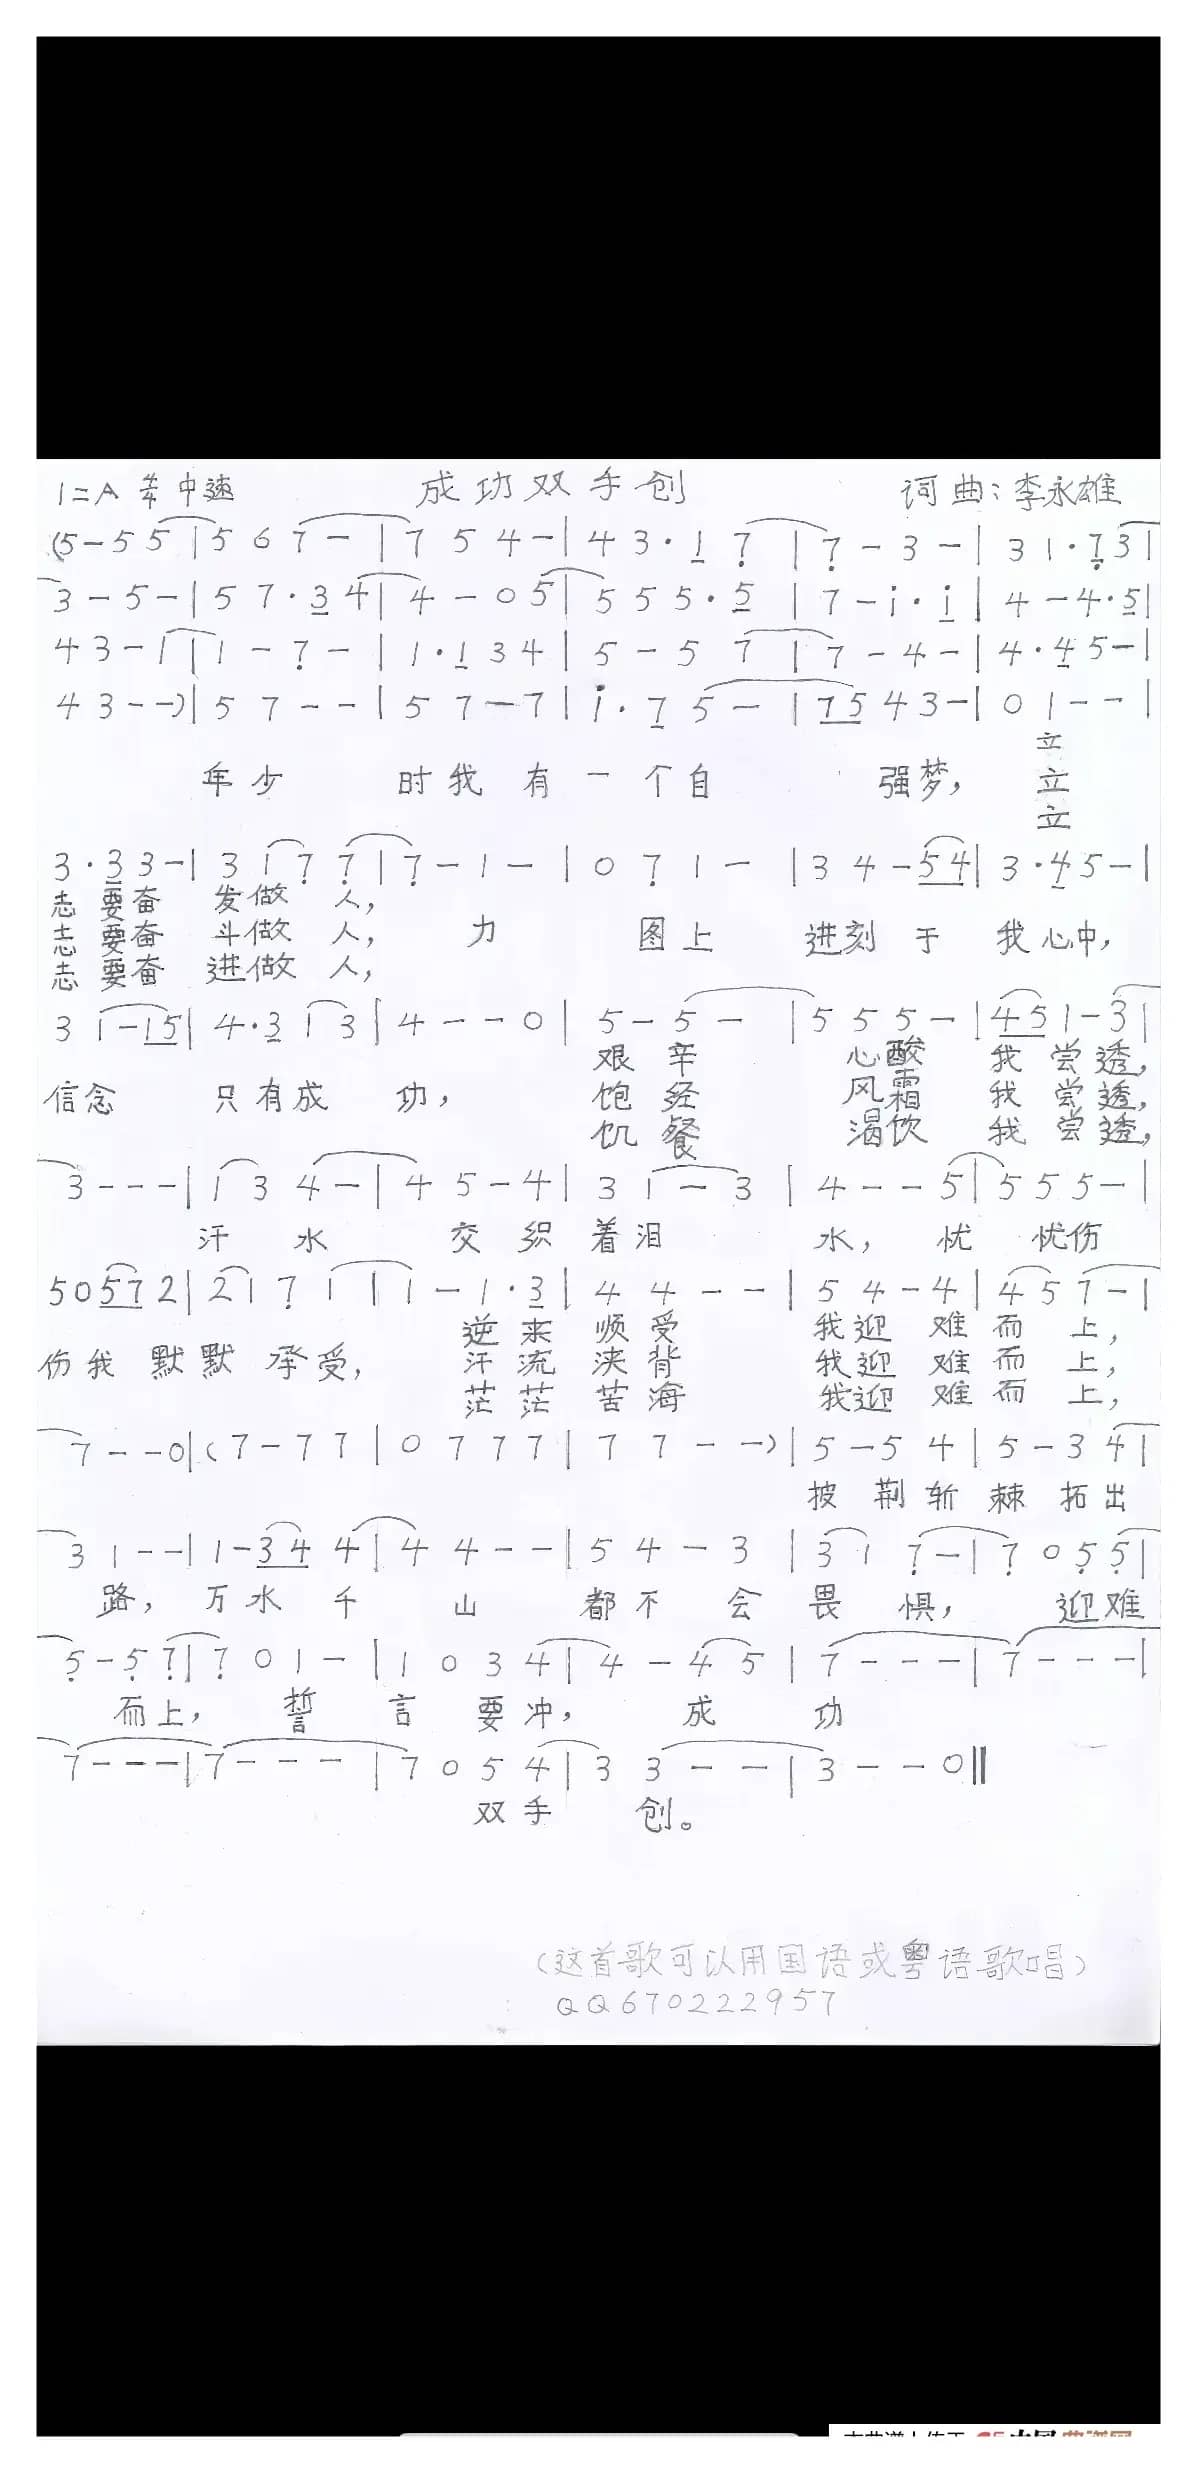 1=A 4/4 中速 成功双手创 词曲:李永雄
(5–5 5|5 6 7–|7 5 4–|4 3·1 7|7–3–|3 1·7 3|
3–5–|5 7·3 4|4–0 5|5 5 5·5|7–i·i|4–4·5|
4 3–1|1–7–|1·1 3 4|5–5 7|7–4–|4·4 5–|
4 3––)|5 7––|5 7–7|i·7 5–|7 5 4 3–|0 1––|
立
年少 时我有一个自 强梦, 立
立
3·3 3–|3 1 7 7|7–1–|0 7 1–|3 4–5 4|3·4 5–|
志要奋 发做 人,
志要奋 斗做 人, 力 图上 进刻于我心中,
志要奋 进做 人,
3 1–1 5|4·3 1 3|4––0|5–5–|5 5 5–|4 5 1–3|
艰辛 心酸 我尝透,
信念 只有成功, 饱经 风霜 我尝透,
饥餐 渴饮 我尝透,
3–––|1 3 4–|4 5–4|3 1–3|4––5|5 5 5–|
汗水 交织着泪 水,忧 忧伤
5 0 5 7 2|2 1 7 1|1–1·3|4 4––|5 4–4|4 5 7–|
逆来顺受 我迎难而上,
伤我默默承受, 汗流浃背 我迎难而上,
茫茫苦海 我迎难而上,
7––0|(7–7 7|0 7 7 7|7 7––)|5–5 4|5–3 4|
披荆斩棘拓出
3 1––|1–3 4 4|4 4––|5 4–3|3 1 7–|7 0 5 5|
路,万水千 山 都不会畏惧, 迎难
5–5 7|7 0 1–|1 0 3 4|4–4 5|7–––|7–––|
而上, 誓 言 要冲, 成 功
7–––|7–––|7 0 5 4|3 3––|3––0‖
双手 创。
(这首歌可以用国语或粤语歌唱)
QQ670222957